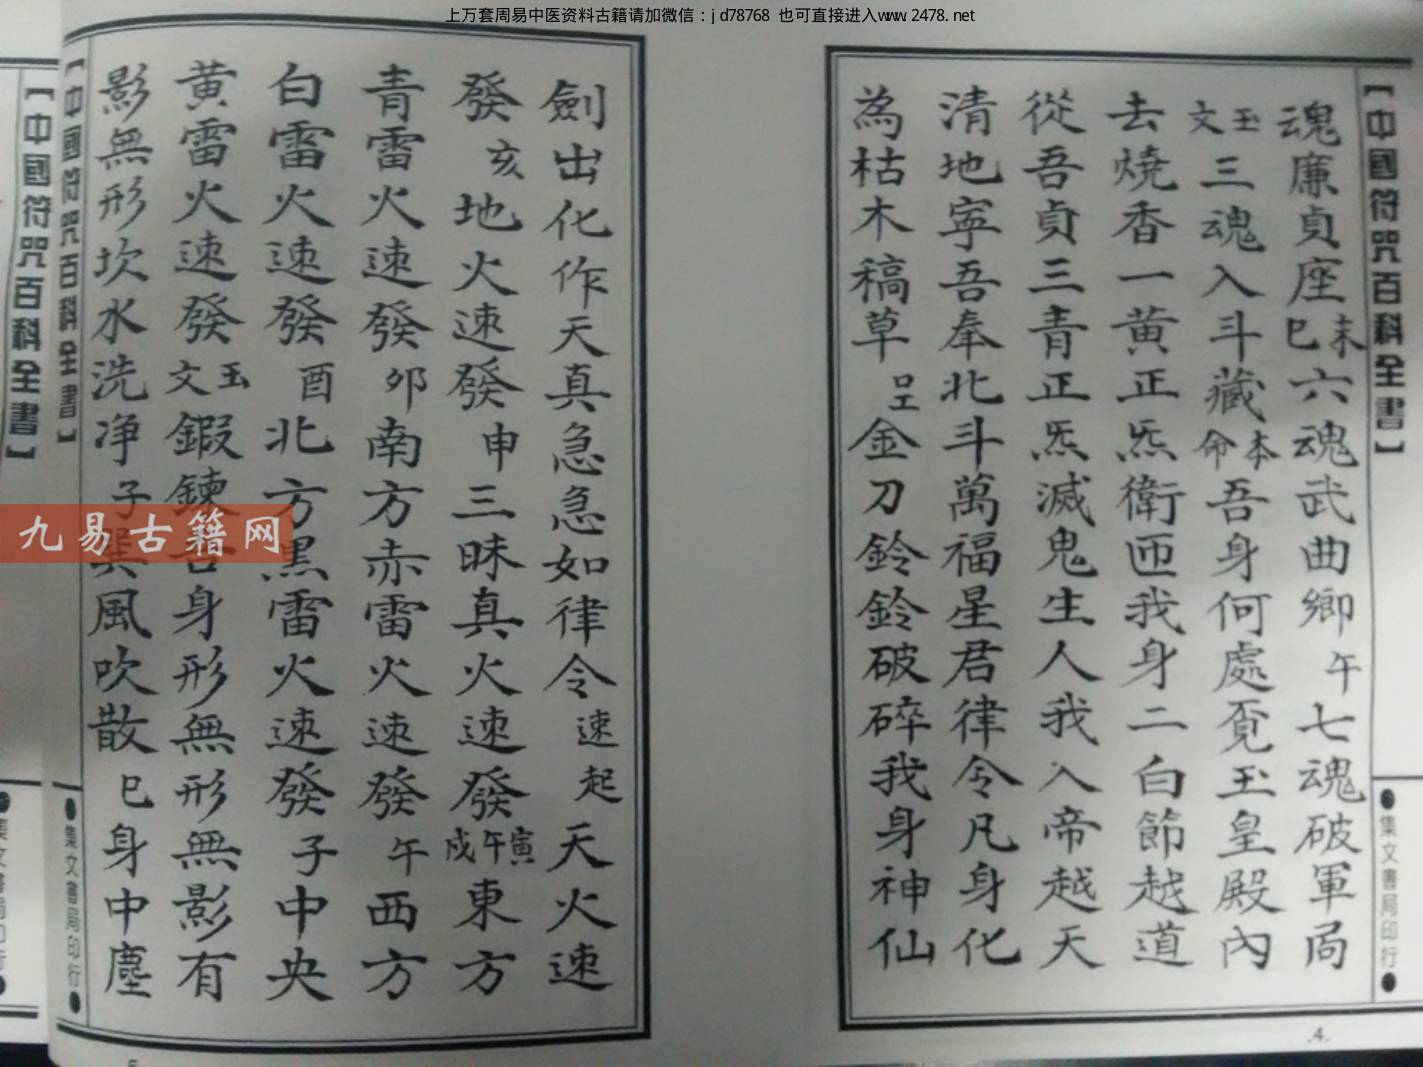 上万套周易中医资料古籍请加微信：jd78768 也可直接进入www.2478.net
【中國符咒百科全書】
●集文書局印行●
魂廉貞座未巳六魂武曲鄉午七魂破軍局
玉文三魂入斗藏本命吾身何處覓玉皇殿內
去燒香一黄正炁衛匝我身二白節越道
從吾貞三青正炁滅鬼生人我入帝越天
清地寧吾奉北斗萬福星君律令凡身化
為枯木稿草金刀鈴鈴破碎我身神仙
.4.
劍出化作天真急急如律令速起天火速
發亥地火速發申三昧真火速發寅午戌東方
青雷火速發卯南方赤雷火速發午西方
白雷火速發酉北方黑雷火速發子中央
黄雷火速發玉文鍛鍊吾身形無形無影有
影無形坎水洗净子巽風吹散巳身中塵
【中國符咒百科全書】
●集文書局印行●
【中國符咒百科全書】
九易古籍网